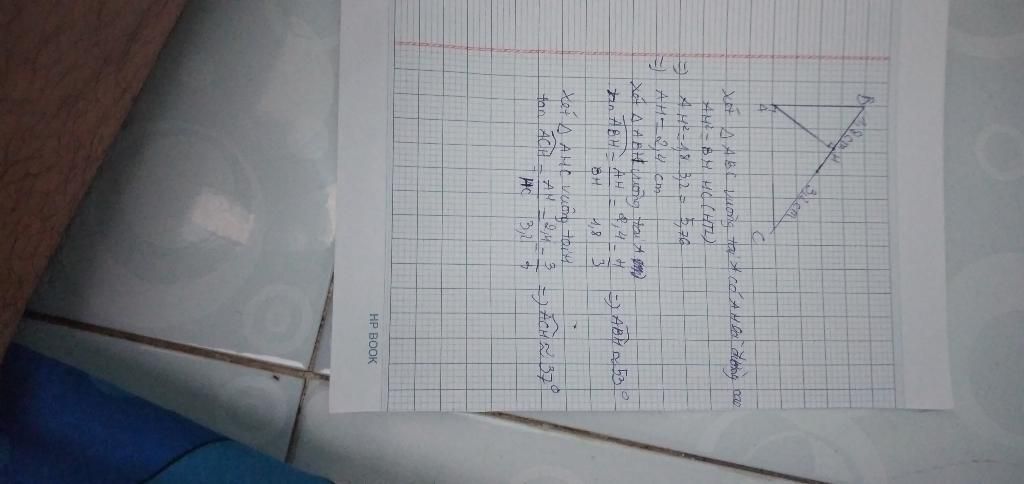 B
1,8cm
H
3,2cm
A
C
Xét △ABC vuông tại A có AH là đường cao
AH² = BH.HC (HTL)
=) AH² = 1,8.3,2 = 5,76
=) AH = 2,4 cm
Xét △ABH vuông tại
tan ABH = AH/BH = 2,4/1,8 = 4/3 =) ABH ≈ 53°
Xét △AHC vuông tại H
tan ACH = AH/HC = 2,4/3,2 = 3/4 =) ACH ≈ 37°
HP BOOK